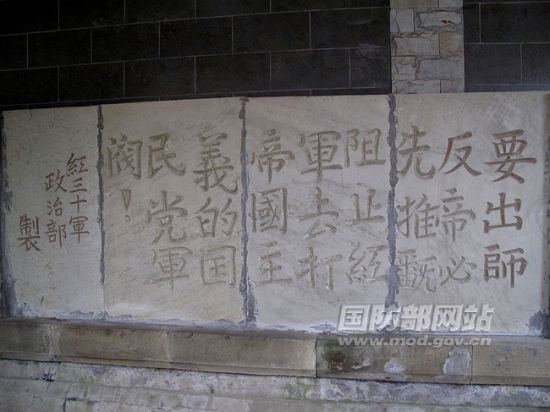 要出師
反帝必
先推翻
阻止紅
軍去打
帝國主
義的国
民党軍
阀！
紅三十軍
政治部
製
国防部网站
www.mod.gov.cn